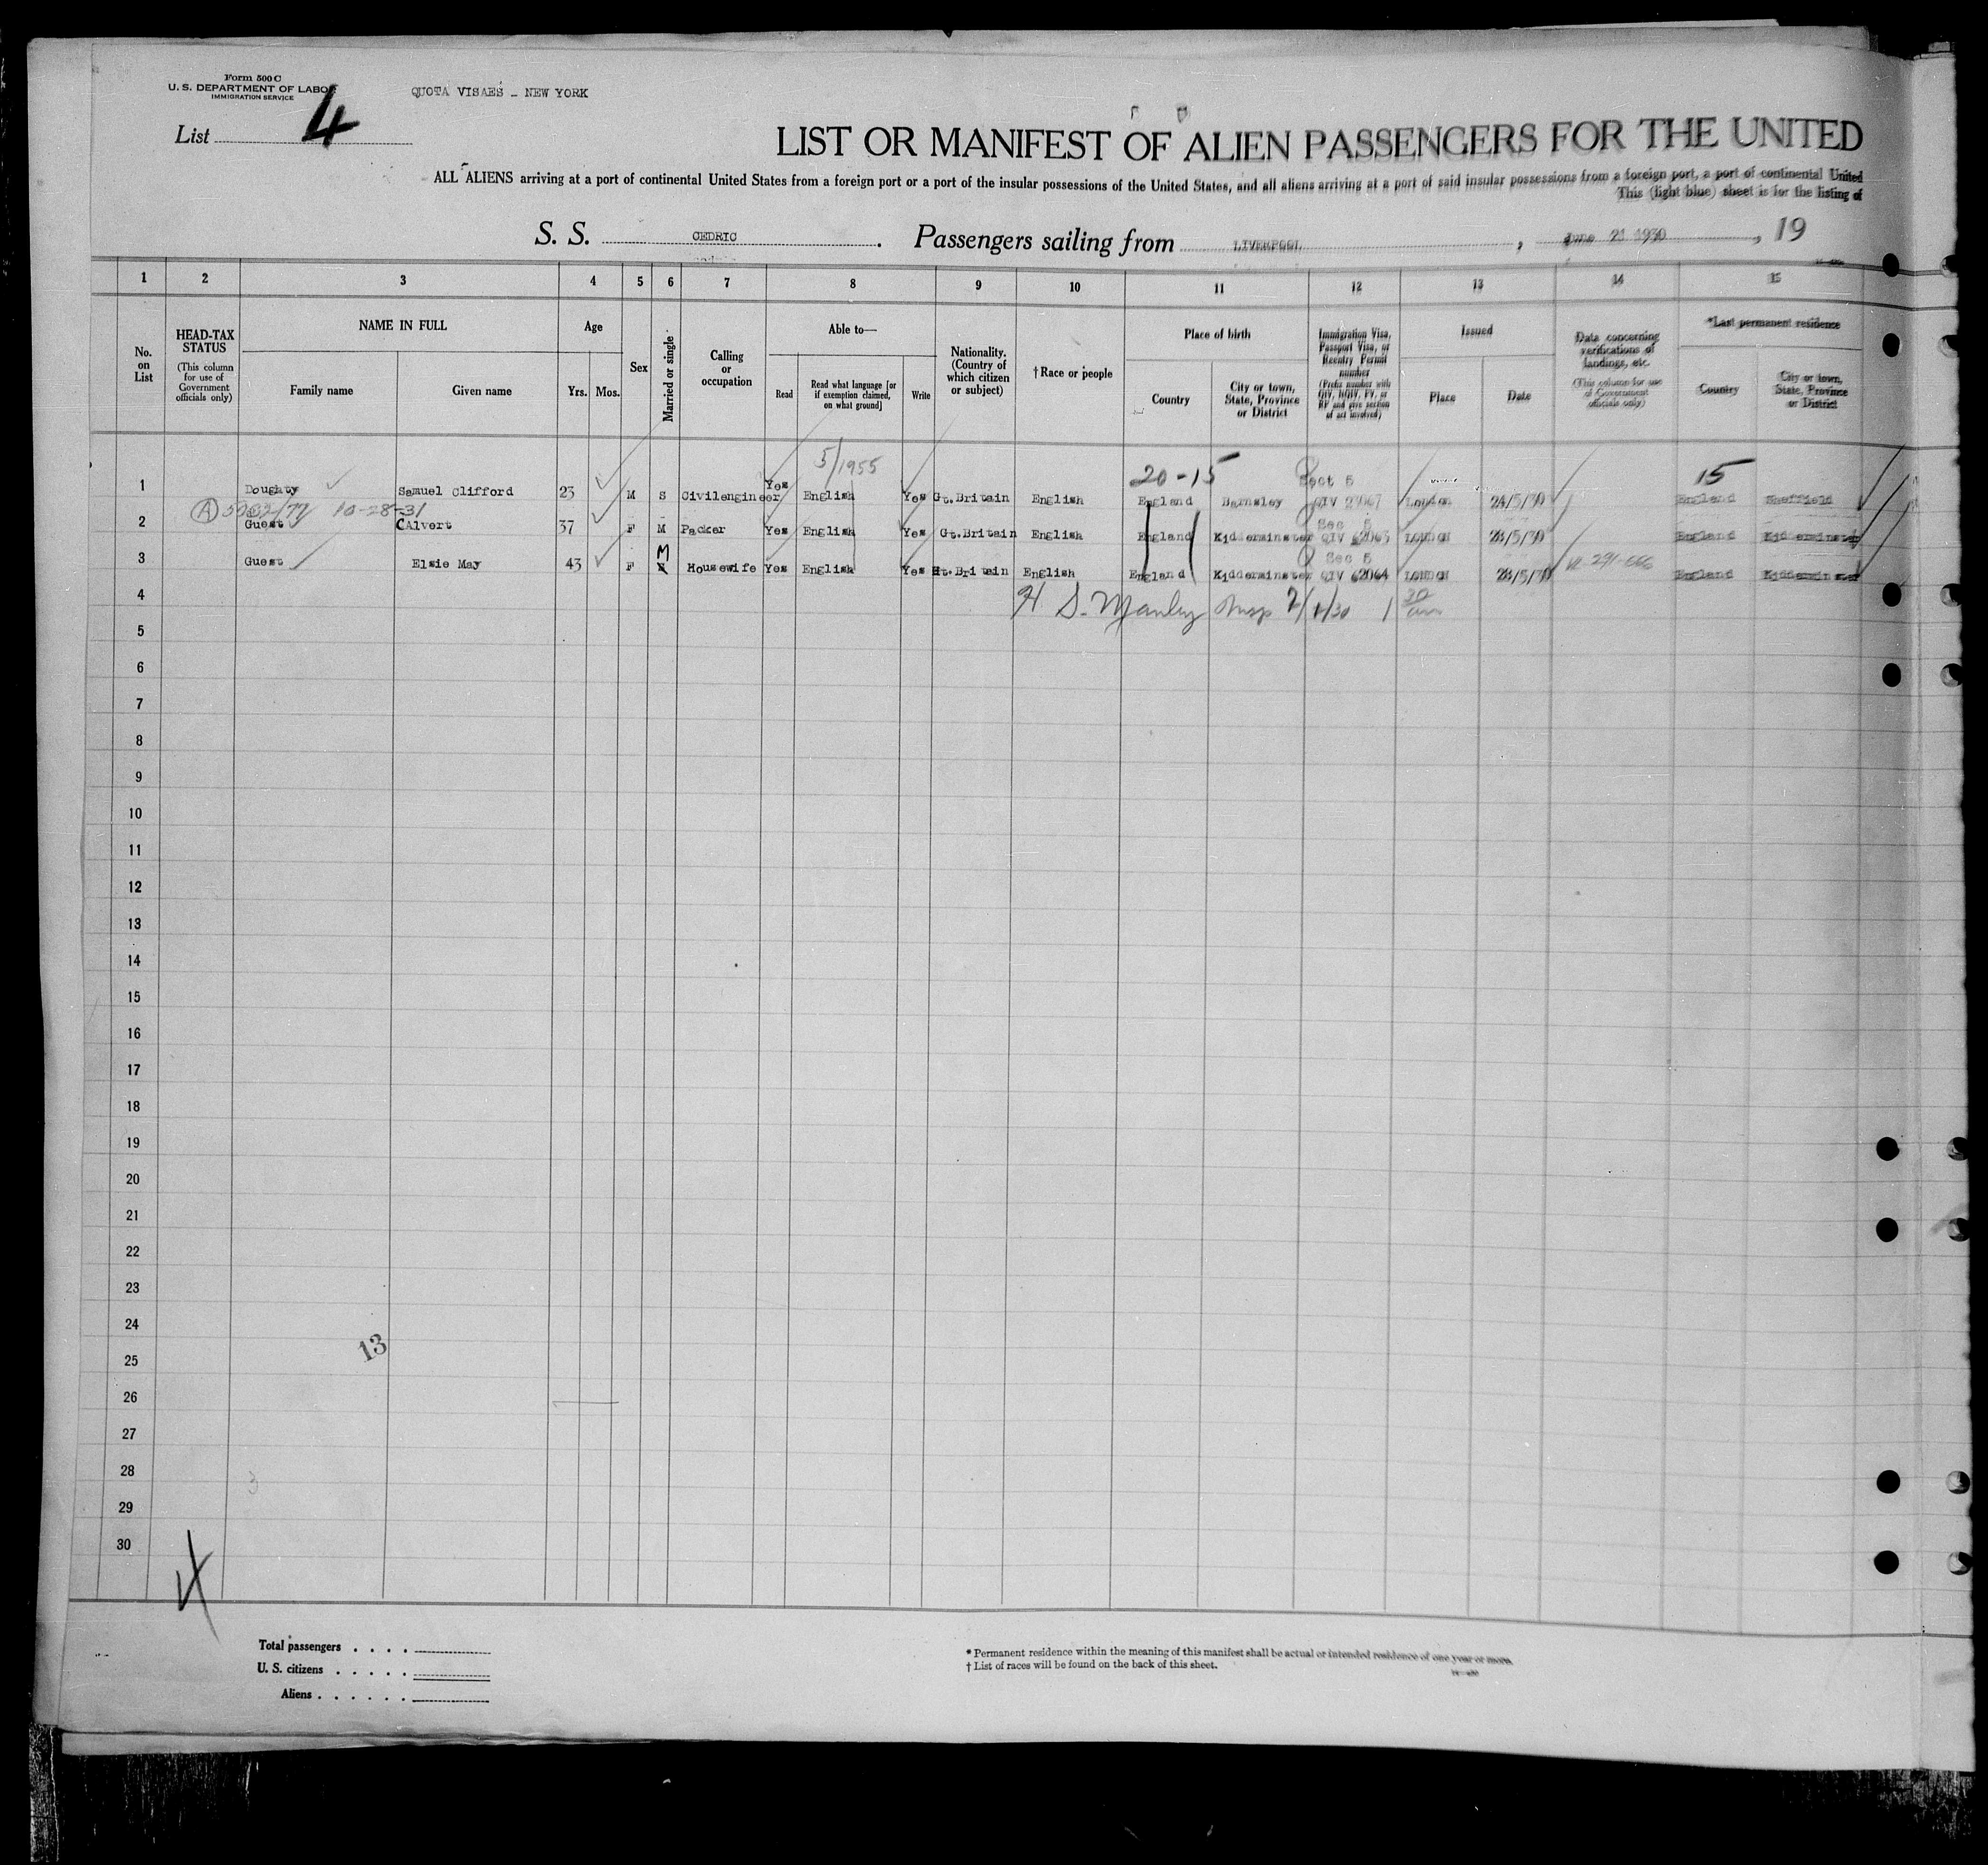 Form 500 C
U. S. DEPARTMENT OF LABOR
IMMIGRATION SERVICE
QUOTA VISAES - NEW YORK
List 4
LIST OR MANIFEST OF ALIEN PASSENGERS FOR THE UNITED
ALL ALIENS arriving at a port of continental United States from a foreign port or a port of the insular possessions of the United States, and all aliens arriving at a port of said insular possessions from a foreign port, a port of continental United
This (light blue) sheet is for the listing of
S. S. CEDRIC. Passengers sailing from LIVERPOOL, June 21 1930, 19
1 2 3 4 5 6 7 8 9 10 11 12 13 14 15
No. on List
HEAD-TAX STATUS
(This column for use of Government officials only)
NAME IN FULL
Family name
Given name
Age
Yrs.
Mos.
Sex
Married or single
Calling or occupation
Able to—
Read
Read what language [or if exemption claimed, on what ground]
Write
Nationality. (Country of which citizen or subject)
†Race or people
Place of birth
Country
City or town, State, Province or District
Immigration Visa, Passport Visa, or Reentry Permit number
(Prefix number with QIV, NQIV, PV, or RP and give section of act involved)
Issued
Place
Date
Data concerning verifications of landings, etc.
(This column for use of Government officials only)
*Last permanent residence
Country
City or town, State, Province or District
5/1955
20-15
Sect 5
15
1 Doughty Samuel Clifford 23 M S Civilengineer Yes English Yes Gt.Britain English England Barnsley QIV 23067 London 24/5/30 England Sheffield
10-28-31
Sec 5
2 Guest CAlvert 37 F M Packer Yes English Yes Gt.Britain English England Kidderminster QIV 62065 LONDON 28/5/30 England Kidderminster
M
Sec 5
3 Guest Elsie May 43 F Housewife Yes English Yes Gt.Britain English England Kidderminster QIV 62064 LONDON 28/5/30 England Kidderminster
4 H S. Manley Insp
5
6
7
8
9
10
11
12
13
14
15
16
17
18
19
20
21
22
23
24
13
25
26
27
28
29
30
Total passengers . . . .
U. S. citizens . . . . .
Aliens . . . . . .
* Permanent residence within the meaning of this manifest shall be actual or intended residence of one year or more.
† List of races will be found on the back of this sheet.